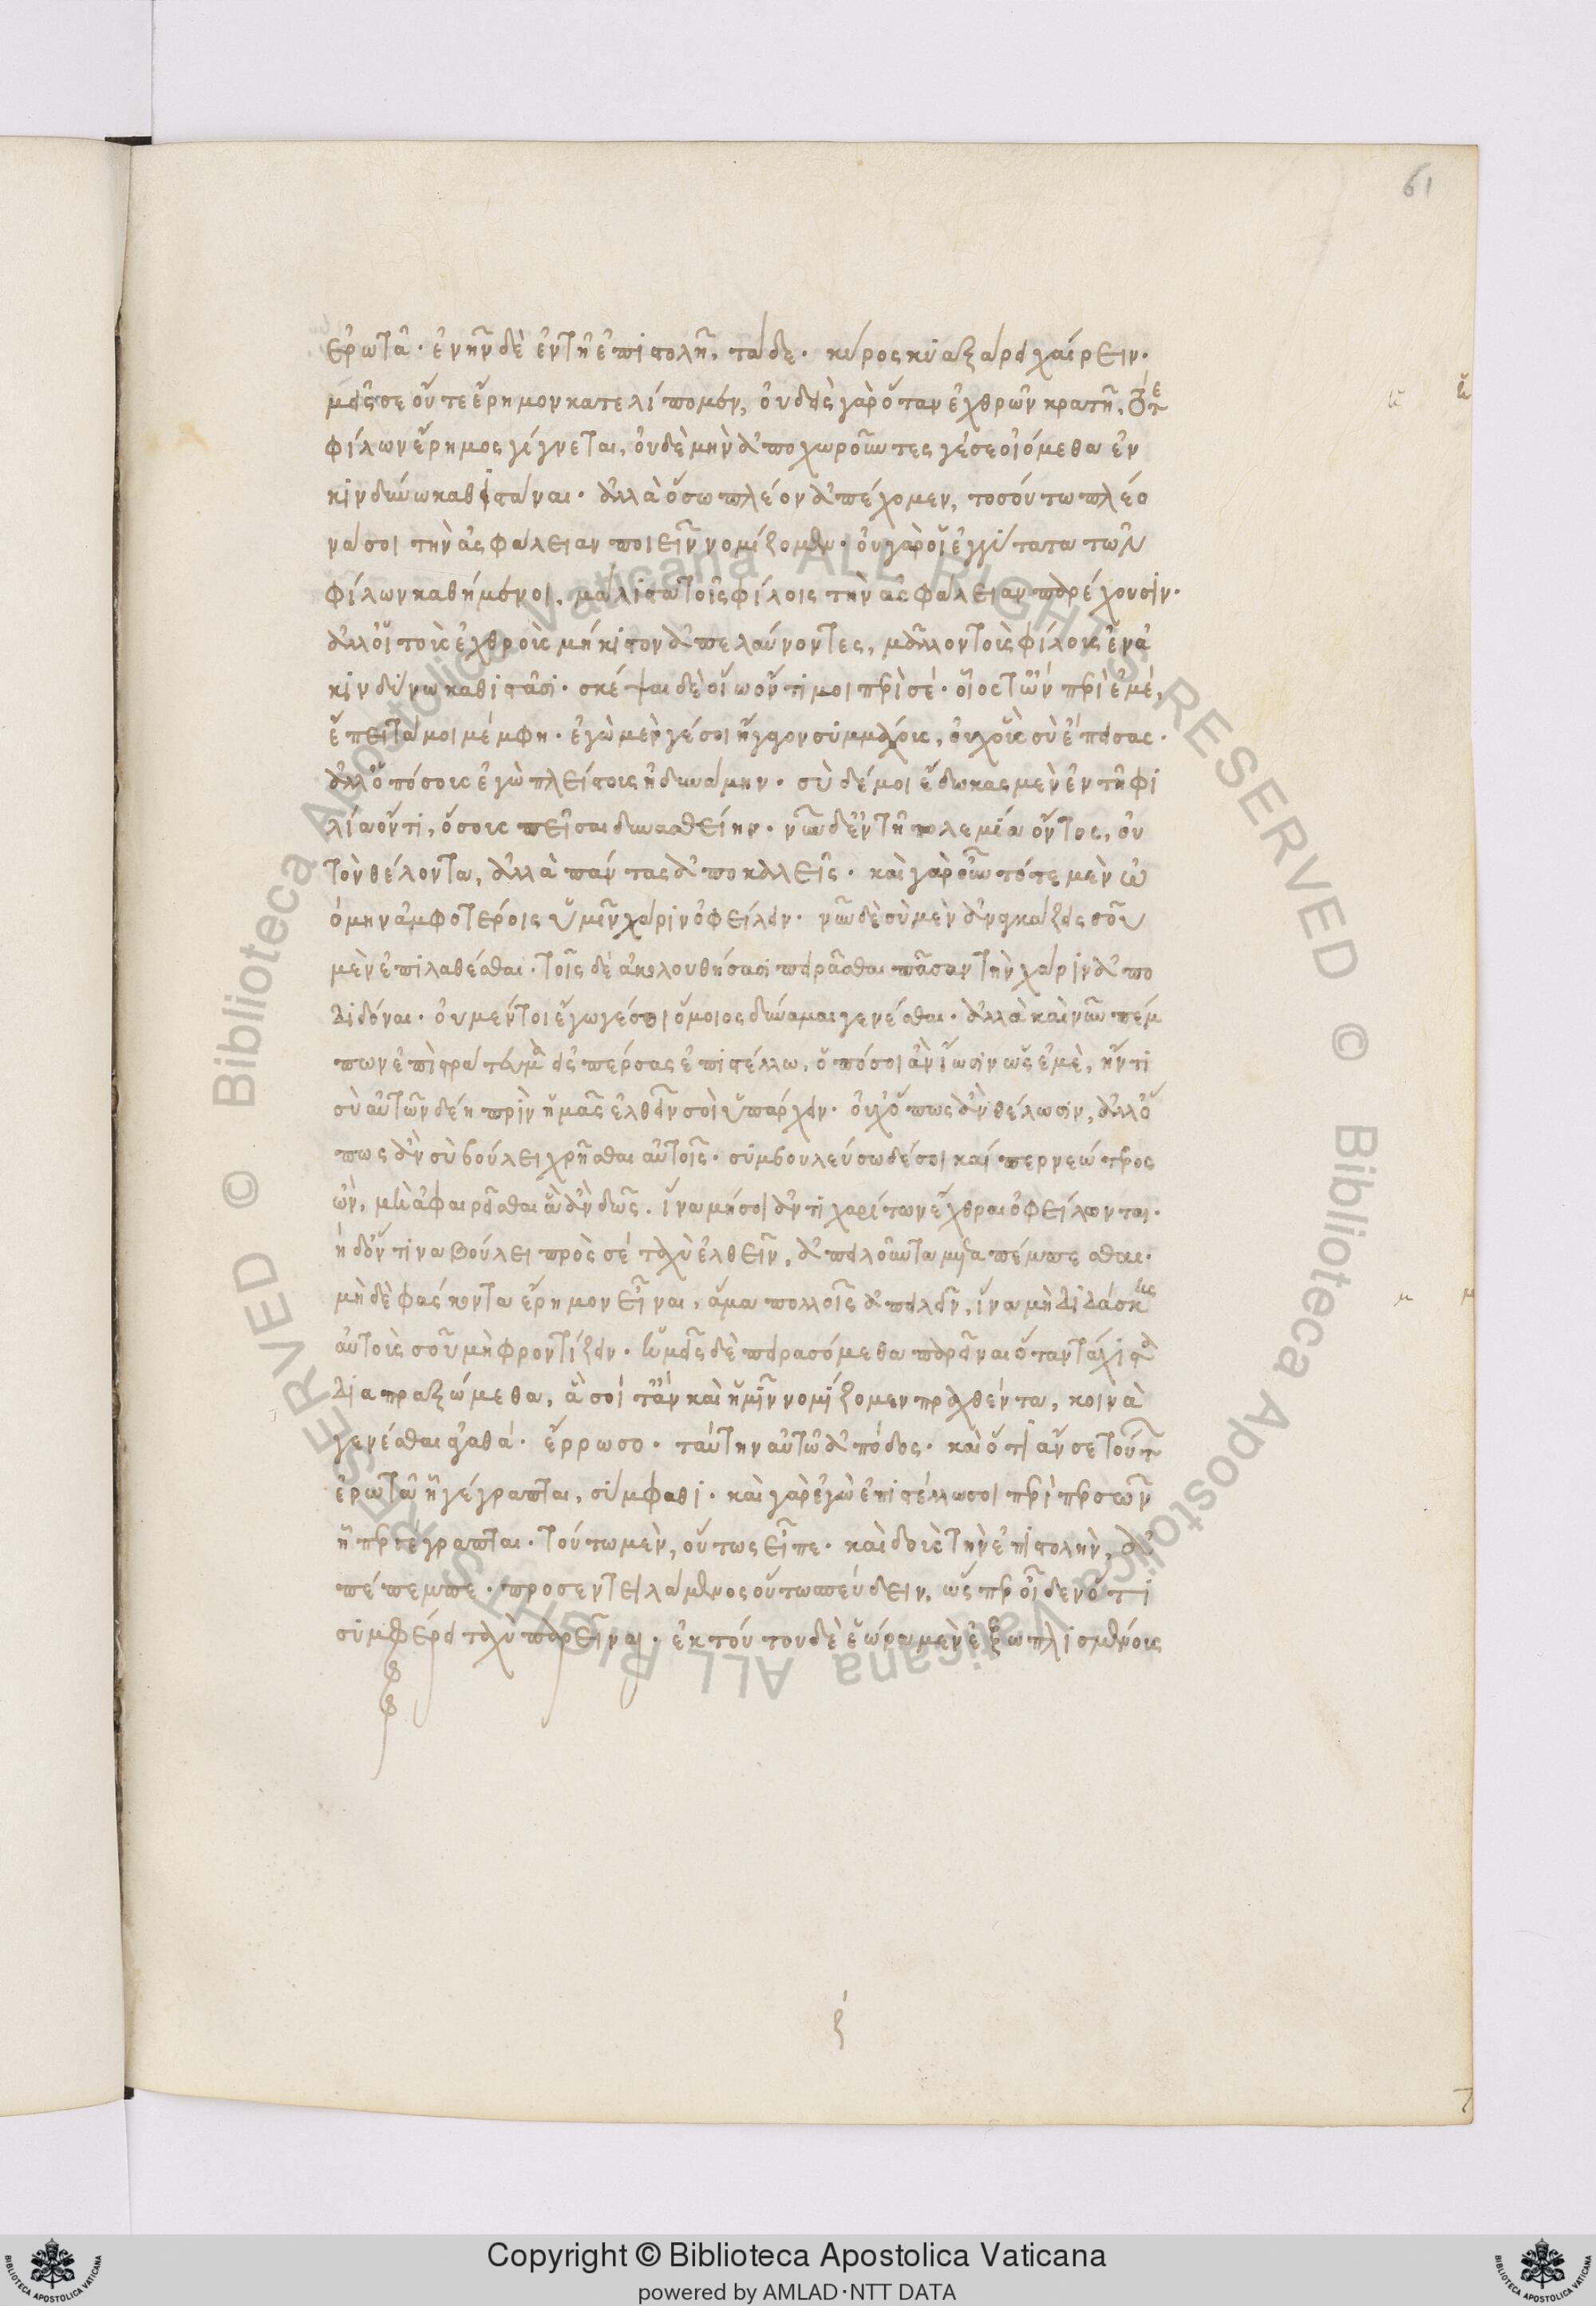 61
ἐρωτᾷ· ἐνῆν δὲ ἐν τῇ ἐπιστολῇ, τάδε· κύρος κυαξάρει χαίρειν·
ἡμεῖς σε οὔτε ἔρημον κατελίπομεν, οὐδεὶς γὰρ ὅταν ἐχθρῶν κρατῇ, τότε
φίλων ἔρημος γίγνεται, οὐδὲ μὴν ἀποχωροῦντες γέ σε οἰόμεθα ἐν
κινδύνω καθιστάναι· ἀλλὰ ὅσω πλέον ἀπέχομεν, τοσούτω πλέο
να σοι τὴν ἀσφάλειαν ποιεῖν νομίζομεν· οὐ γὰρ οἱ ἐγγύτατα τῶν
φίλων καθήμενοι, μάλιστα τοῖς φίλοις τὴν ἀσφάλειαν παρέχουσιν·
ἀλλ' οἱ τοὺς ἐχθροὺς μήκιστον ἀπελαύνοντες, μᾶλλον τοὺς φίλους ἐν ἀ
κινδύνω καθιστᾶσι· σκέψαι δὲ οἵω ὄντι μοι περὶ σέ· οἷος ὢν περὶ ἐμέ,
ἔπειτά μοι μέμφη· ἐγὼ μέν γέ σοι ἤγαγον συμμάχους, οὐχ οὓς σὺ ἔπεισας·
ἀλλ' ὁπόσους ἐγὼ πλείστους ἠδυνάμην· σὺ δέ μοι ἔδωκας μὲν ἐν τῇ φι
λία ὄντι, ὅσους πεῖσαι δυνασθείην· νῦν δ' ἐν τῇ πολεμία ὄντος, οὐ
τὸν θέλοντα, ἀλλὰ πάντας ἀποκαλεῖς· καὶ γὰρ οὖν τότε μὲν ὠ
όμην ἀμφοτέροις ὑμῖν χάριν ὀφείλειν· νῦν δὲ σὺ μὲν ἀναγκάζεις σοῦ
μὲν ἐπιλαθέσθαι· τοῖς δὲ ἀκολουθήσασι πειρᾶσθαι πᾶσαν τὴν χάριν ἀπο
διδόναι· οὐ μέντοι ἔγωγέ σοι ὅμοιος δύναμαι γενέσθαι· ἀλλὰ καὶ νῦν πέμ
πων ἐπὶ στράτευμα εἰς πέρσας ἐπιστέλλω, ὁπόσοι ἂν ἴωσιν ὡς ἐμὲ, ἤν τι
σὺ αὐτῶν δέη πρὶν ἡμᾶς ἐλθεῖν σοὶ ὑπάρχειν· οὐχ ὅπως ἂν θέλωσιν, ἀλλ' ὅ
πως ἂν σὺ βούλει χρῆσθαι αὐτοῖς· συμβουλεύσω δέ σοι καίπερ νεώτερος
ὢν, μὴ ἀφαιρεῖσθαι ἃ ἂν δῶς. ἵνα μή σοι ἀντὶ χαρίτων ἔχθραι ὀφείλωνται·
μηδ' ὅντινα βούλει πρὸς σέ ταχὺ ἐλθεῖν, ἀπειλοῦντα μεταπέμπεσθαι·
μηδὲ φάσκοντα ἔρημον εἶναι, ἅμα πολλοῖς ἀπειλεῖν, ἵνα μὴ διδάσκης
αὐτοὺς σοῦ μὴ φροντίζειν· ἡμεῖς δὲ πειρασόμεθα παρεῖναι ὅταν τάχιστα
διαπραξώμεθα, ἃ σοί τ' ἂν καὶ ἡμῖν νομίζομεν πραχθέντα, κοινὰ
γενέσθαι ἀγαθά· ἔρρωσο· ταύτην αὐτῶ ἀπόδος· καὶ ὅ τι ἄν σε τούτων
ἐρωτᾷ ἣ γέγραπται, σύμφαθι· καὶ γὰρ ἐγὼ ἐπιστέλλω σοι περὶ περσῶν
ἧπερ γέγραπται· τούτω μὲν, οὕτως εἶπε· καὶ δοὺς τὴν ἐπιστολὴν, ἀ
πέπεμπε· προσεντειλάμενος οὕτω σπεύδειν, ὥσπερ οἶδεν ὅτι
συμφέρει ταχὺ παρεῖναι· ἐκ τούτου δὲ ἑώρα μὲν ἐξωπλισμένους
ξ
Copyright © Biblioteca Apostolica Vaticana
powered by AMLAD·NTT DATA